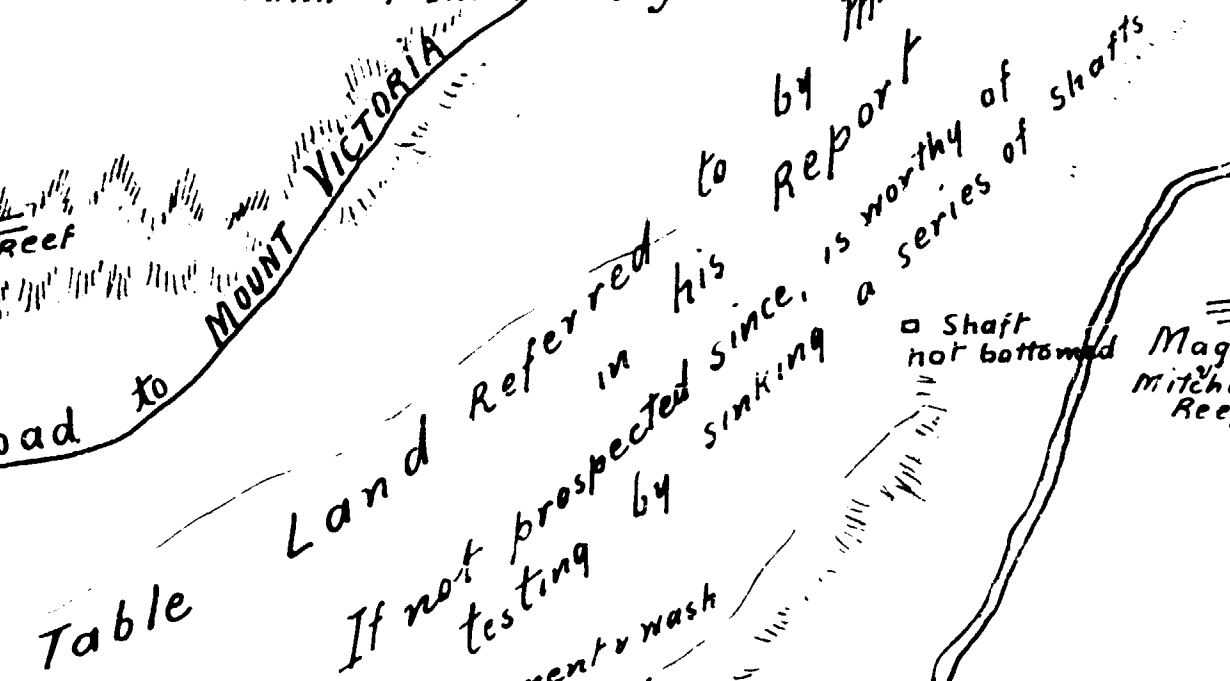 Reef
to MOUNT VICTORIA
Table Land Referred to by
in his Report
If not prospected since, is worthy of
testing by sinking a series of shafts
Shaft
not bottomed
Reef
wash